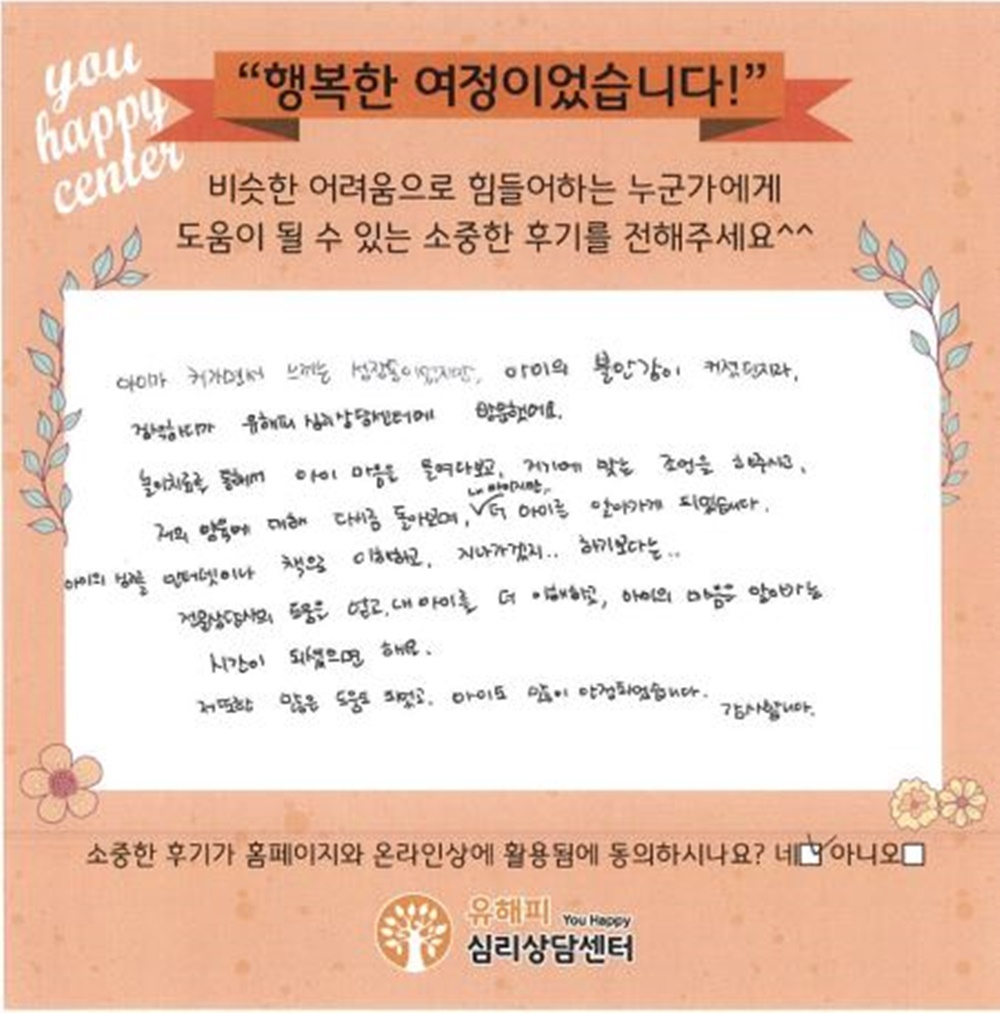 you
happy
center
“행복한 여정이었습니다!”
비슷한 어려움으로 힘들어하는 누군가에게
도움이 될 수 있는 소중한 후기를 전해주세요^^
아이가 커가면서 느끼는 성장통이었지만, 아이의 불안감이 커졌던지라,
검색하다가 유해피 심리상담센터에 방문했어요.
놀이치료를 통해서 아이 마음을 들여다보고, 저기에 맞는 조언을 해주시고,
저의 양육에 대해 다시금 돌아보며, 내 아이지만, 더 아이를 알아가게 되었습니다.
아이의 인터넷이나 책으로 이해하고, 지나가겠지.. 하기보다는..
전문상담사의 도움을 얻고, 내 아이를 더 이해하고, 아이의 마음을 알아가는
시간이 되셨으면 해요.
저또한 많은 도움도 되었고, 아이도 많이 안정되었습니다.
감사합니다.
소중한 후기가 홈페이지와 온라인상에 활용됨에 동의하시나요? 네 아니오
유해피 You Happy
심리상담센터